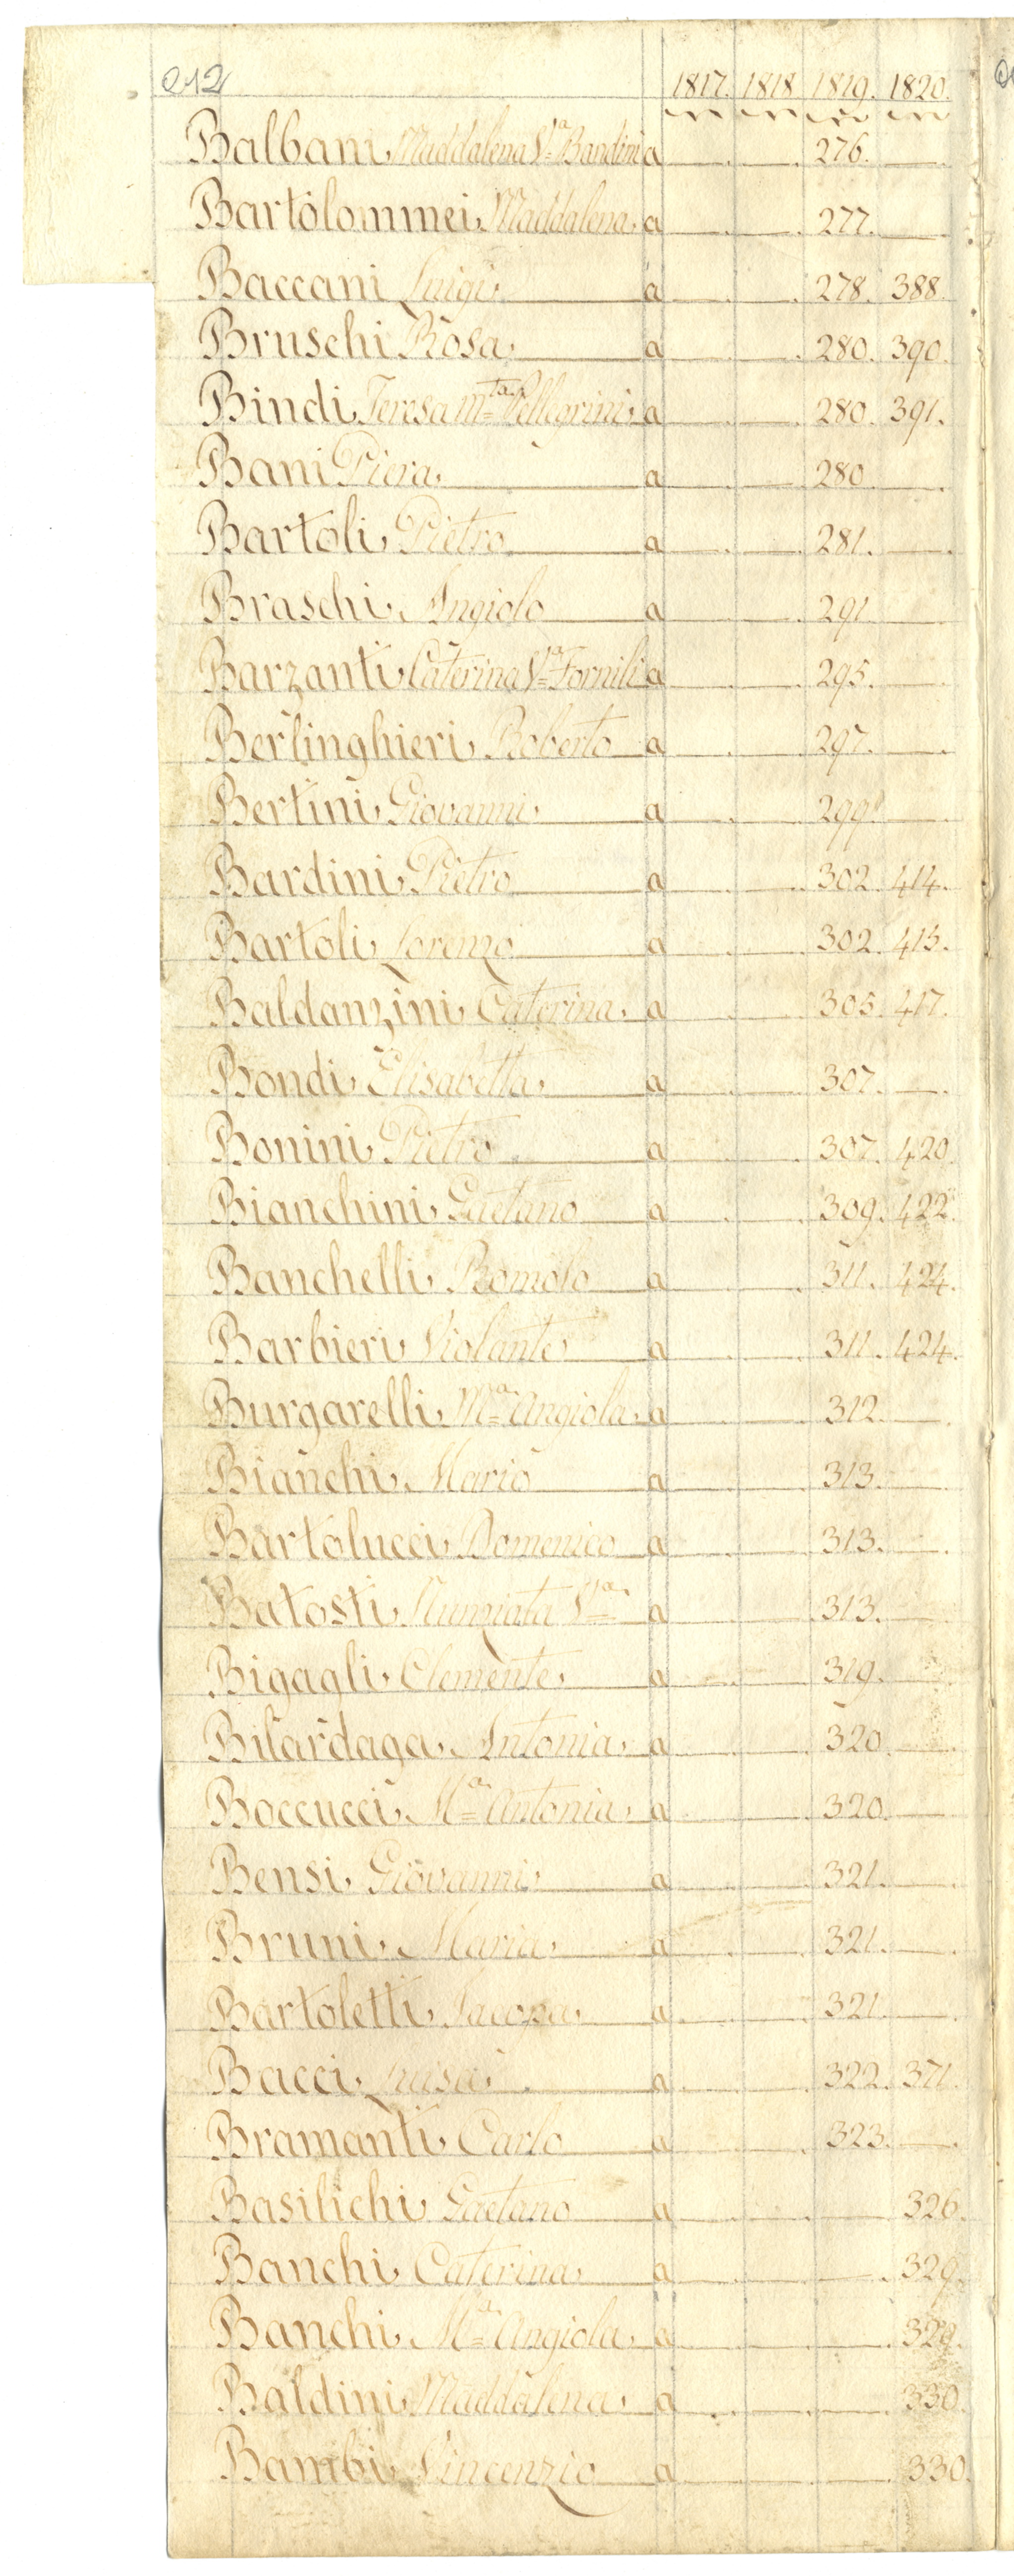 212 1817. 1818 1819. 1820.
Balbani, Maddalena Va Bandini a 276.
Bartolommei, Maddalena, a 277.
Baccani Luigi, a 278. 388.
Bruschi, Rosa, a 280. 390.
Bindi, Teresa mta Pellegrini, a 280. 391.
Bani Piera, a 280
Bartoli, Pietro a 281.
Braschi, Angiolo a 291
Barzanti, Caterina Va Fornili a 295.
Berlinghieri, Roberto a 297.
Bertini, Giovanni, a 299.
Bardini, Pietro a 302. 414.
Bartoli, Lorenzo a 302. 415.
Baldanzini, Caterina, a 305. 417.
Bondi, Elisabetta, a 307.
Bonini, Pietro, a 307. 420.
Bianchini, Gaetano a 309. 422.
Banchelli, Romolo a 311. 424.
Barbieri, Violante, a 311. 424.
Burgarelli, Ma Angiola, a 312.
Bianchi, Mario a 313.
Bartolucci, Domenico a 313.
Batosti, Nunziata Va a 313.
Bigagli, Clemente, a 319.
Bilardaga, Antonia, a 320.
Boccucci, Ma Antonia, a 320.
Bensi, Giovanni, a 321.
Bruni, Maria, a 321.
Bartoletti, Jacopa, a 321.
Bacci, Luisa, a 322. 371.
Bramanti, Carlo a 323.
Basilichi, Gaetano a 326.
Banchi, Caterina, a 329.
Banchi, Ma Angiola, a 329.
Baldini, Maddalena, a 330.
Bambi, Vincenzio a 330.